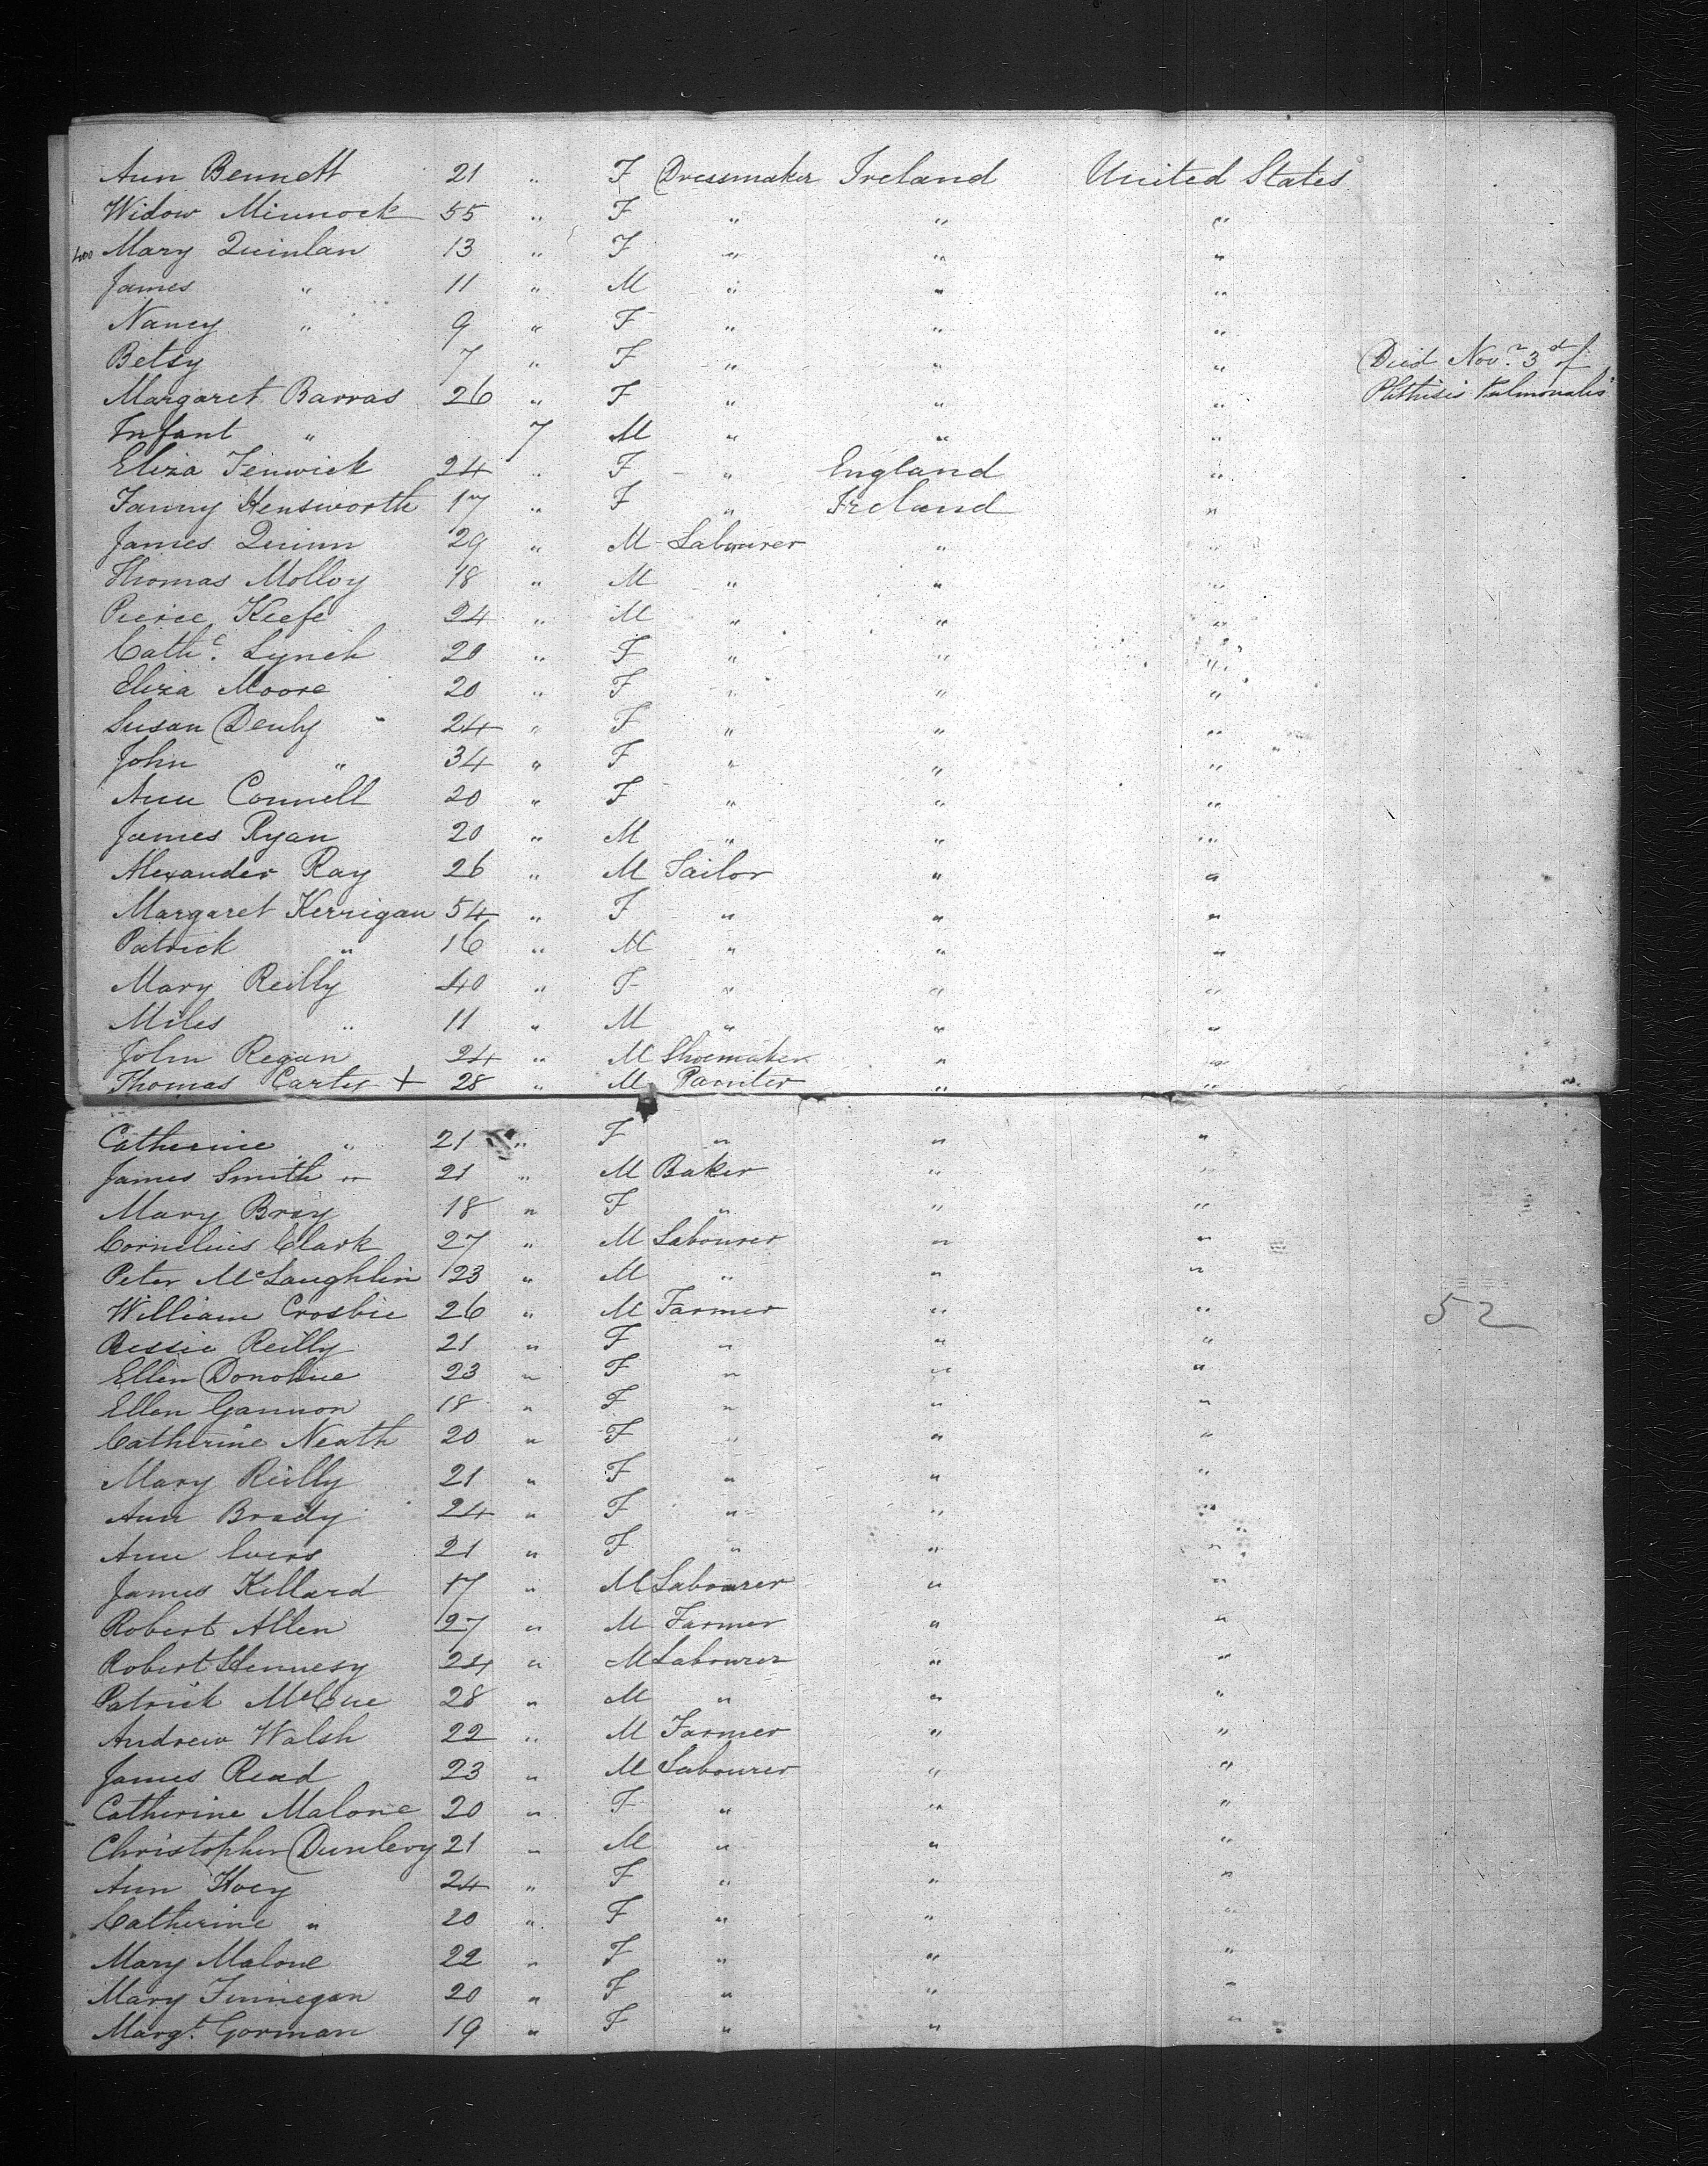 Ann Bennett 21 " F Dressmaker Ireland United States
Widow Minnock 55 " F " " "
400 Mary Quinlan 13 " F " " "
James " 11 " M " " "
Nancy " 9 " F " " "
Betsy 7 " F " " " Died Novr. 3d of
Margaret Barras 26 " F " " " Phthisis Pulmonalis
Infant " 7 M " " "
Eliza Fenwick 24 " F " England "
Fanny Hensworth 17 " F " Ireland "
James Quinn 29 " M Labourer " "
Thomas Molloy 18 " M " " "
Pierce Keefe 24 " M " " "
Cathe. Lynch 20 " F " " "
Eliza Moore 20 " F " " "
Susan Denly " 24 " F " " "
John " 34 " F " " "
Ann Connell 20 " F " " "
James Ryan 20 " M " " "
Alexander Ray 26 " M Tailor " "
Margaret Kerrigan 54 " F " " "
Patrick " 16 " M " " "
Mary Reilly 40 " F " " "
Miles " 11 " M " " "
John Regan 24 " M Shoemaker " "
Thomas Carty + 28 " M Painter " "
Catherine " 21 " F " " "
James Smith " 21 " M Baker " "
Mary Bray 18 " F " " "
Cornelius Clark 27 " M Labourer " "
Peter McLaughlin 23 " M " " "
William Crosbie 26 " M Farmer " " 52
Bessie Reilly 21 " F " " "
Ellen Donohue 23 " F " " "
Ellen Gannon 18 " F " " "
Catherine Neath 20 " F " " "
Mary Reilly 21 " F " " "
Ann Brady 24 " F " " "
Ann Evers 21 " F " " "
James Killard 17 " M Labourer " "
Robert Allen 27 " M Farmer " "
Robert Hennesy 24 " M Labourer " "
Patrick McCue 28 " M " " "
Andrew Walsh 22 " M Farmer " "
James Read 23 " M Labourer " "
Catherine Malone 20 " F " " "
Christopher Dunlevy 21 " M " " "
Ann Hoey 24 " F " " "
Catherine " 20 " F " " "
Mary Malone 22 " F " " "
Mary Finnegan 20 " F " " "
Margt. Gorman 19 " F " " "